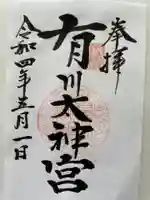 奉拝
有川大神宮
令和四年五月一日